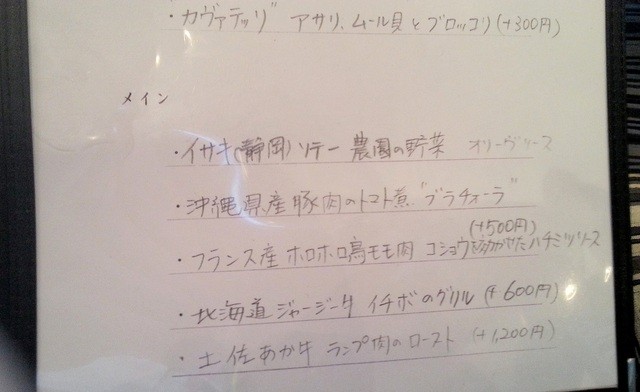 ・"カヴァテッリ" アサリ、ムール貝とブロッコリ(+300円)
メイン
・イサキ(静岡)ソテー 農園の野菜 オリーヴソース
・沖縄県産豚肉のトマト煮 "ブラチォーラ"
(+500円)
・フランス産 ホロホロ鳥モモ肉 コショウ ハチミツソース
・北海道ジャージー牛 イチボのグリル (+600円)
・土佐あか牛 ランプ肉のロースト (+1,200円)